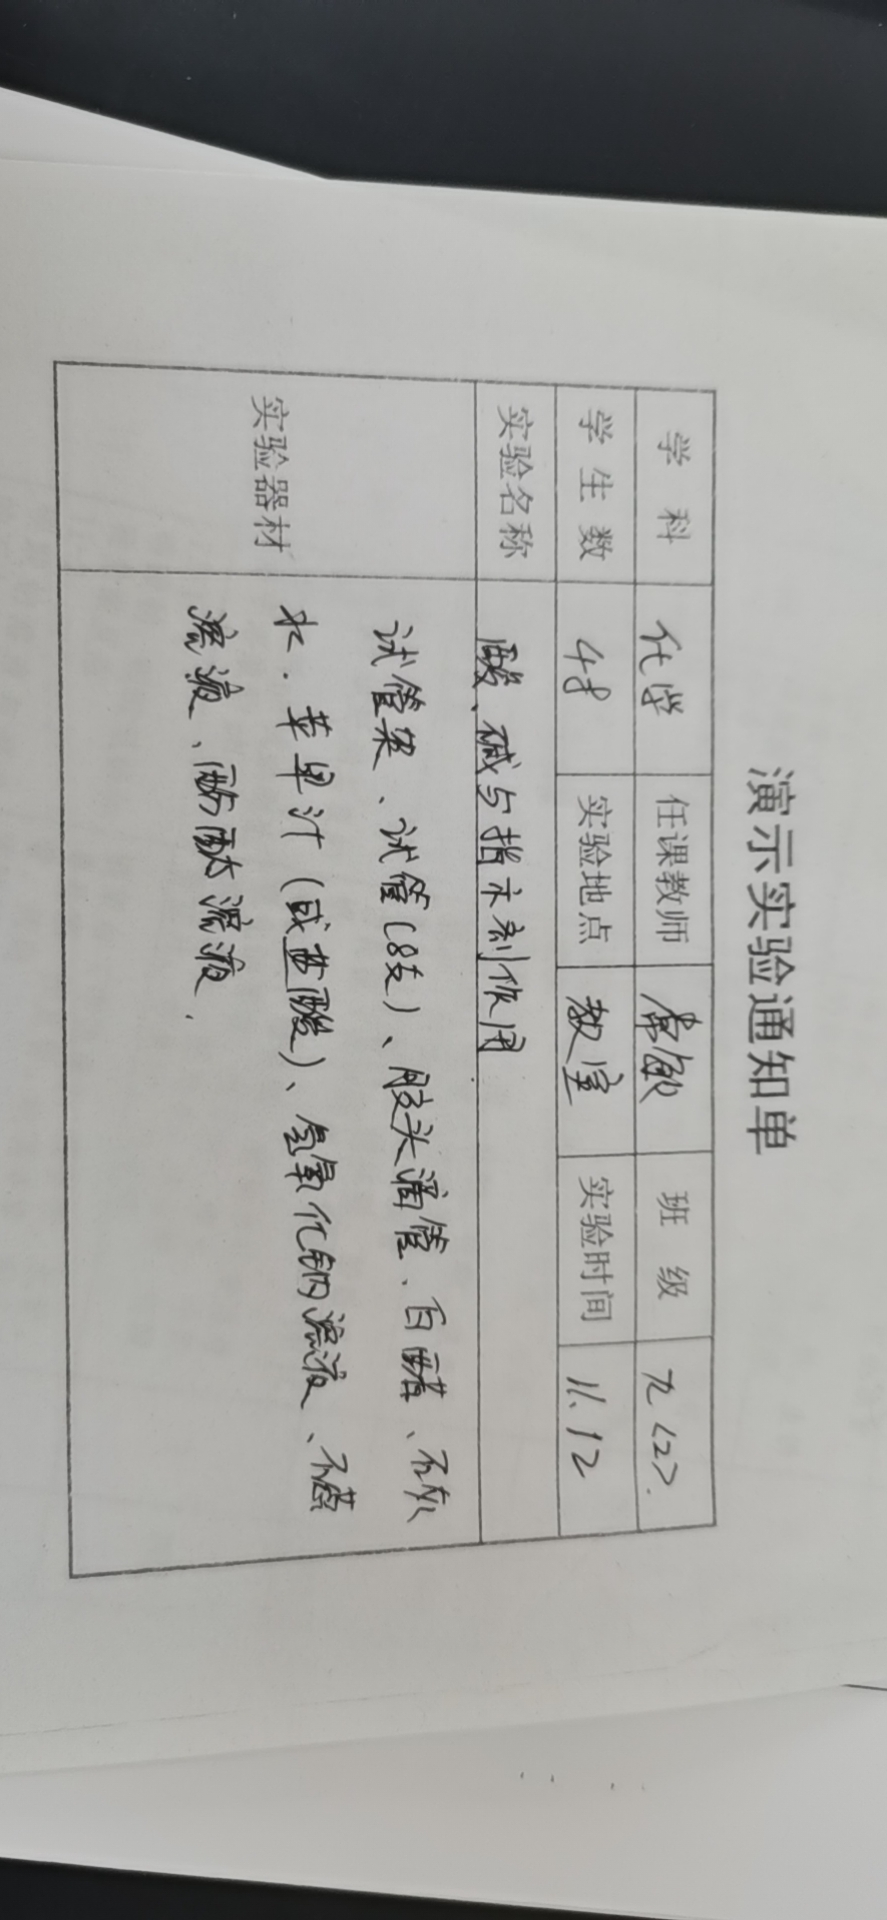 演示实验通知单
学 科 化学 任课教师 常敏 班 级 九<2>.
学 生 数 48 实验地点 教室 实验时间 11.12
实验名称 酸、碱与指示剂作用
实验器材
试管架、试管(8支)、胶头滴管、白醋、石灰
水.苹果汁(或盐酸)、氢氧化钠溶液、石蕊
溶液、酚酞溶液.